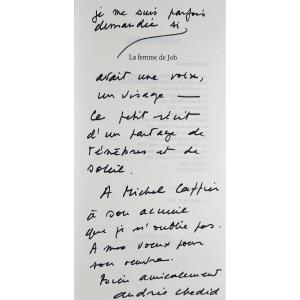 je me suis parfois
demandée si
La femme de Job
avait une voix,
un visage —
Ce petit récit
d'un partage de
ténèbres et de
soleil.
A Michel Caffier
à son accueil
que je n'oublie pas.
A mes voeux pour
son oeuvre.
Bien amicalement
Andrée Chedid